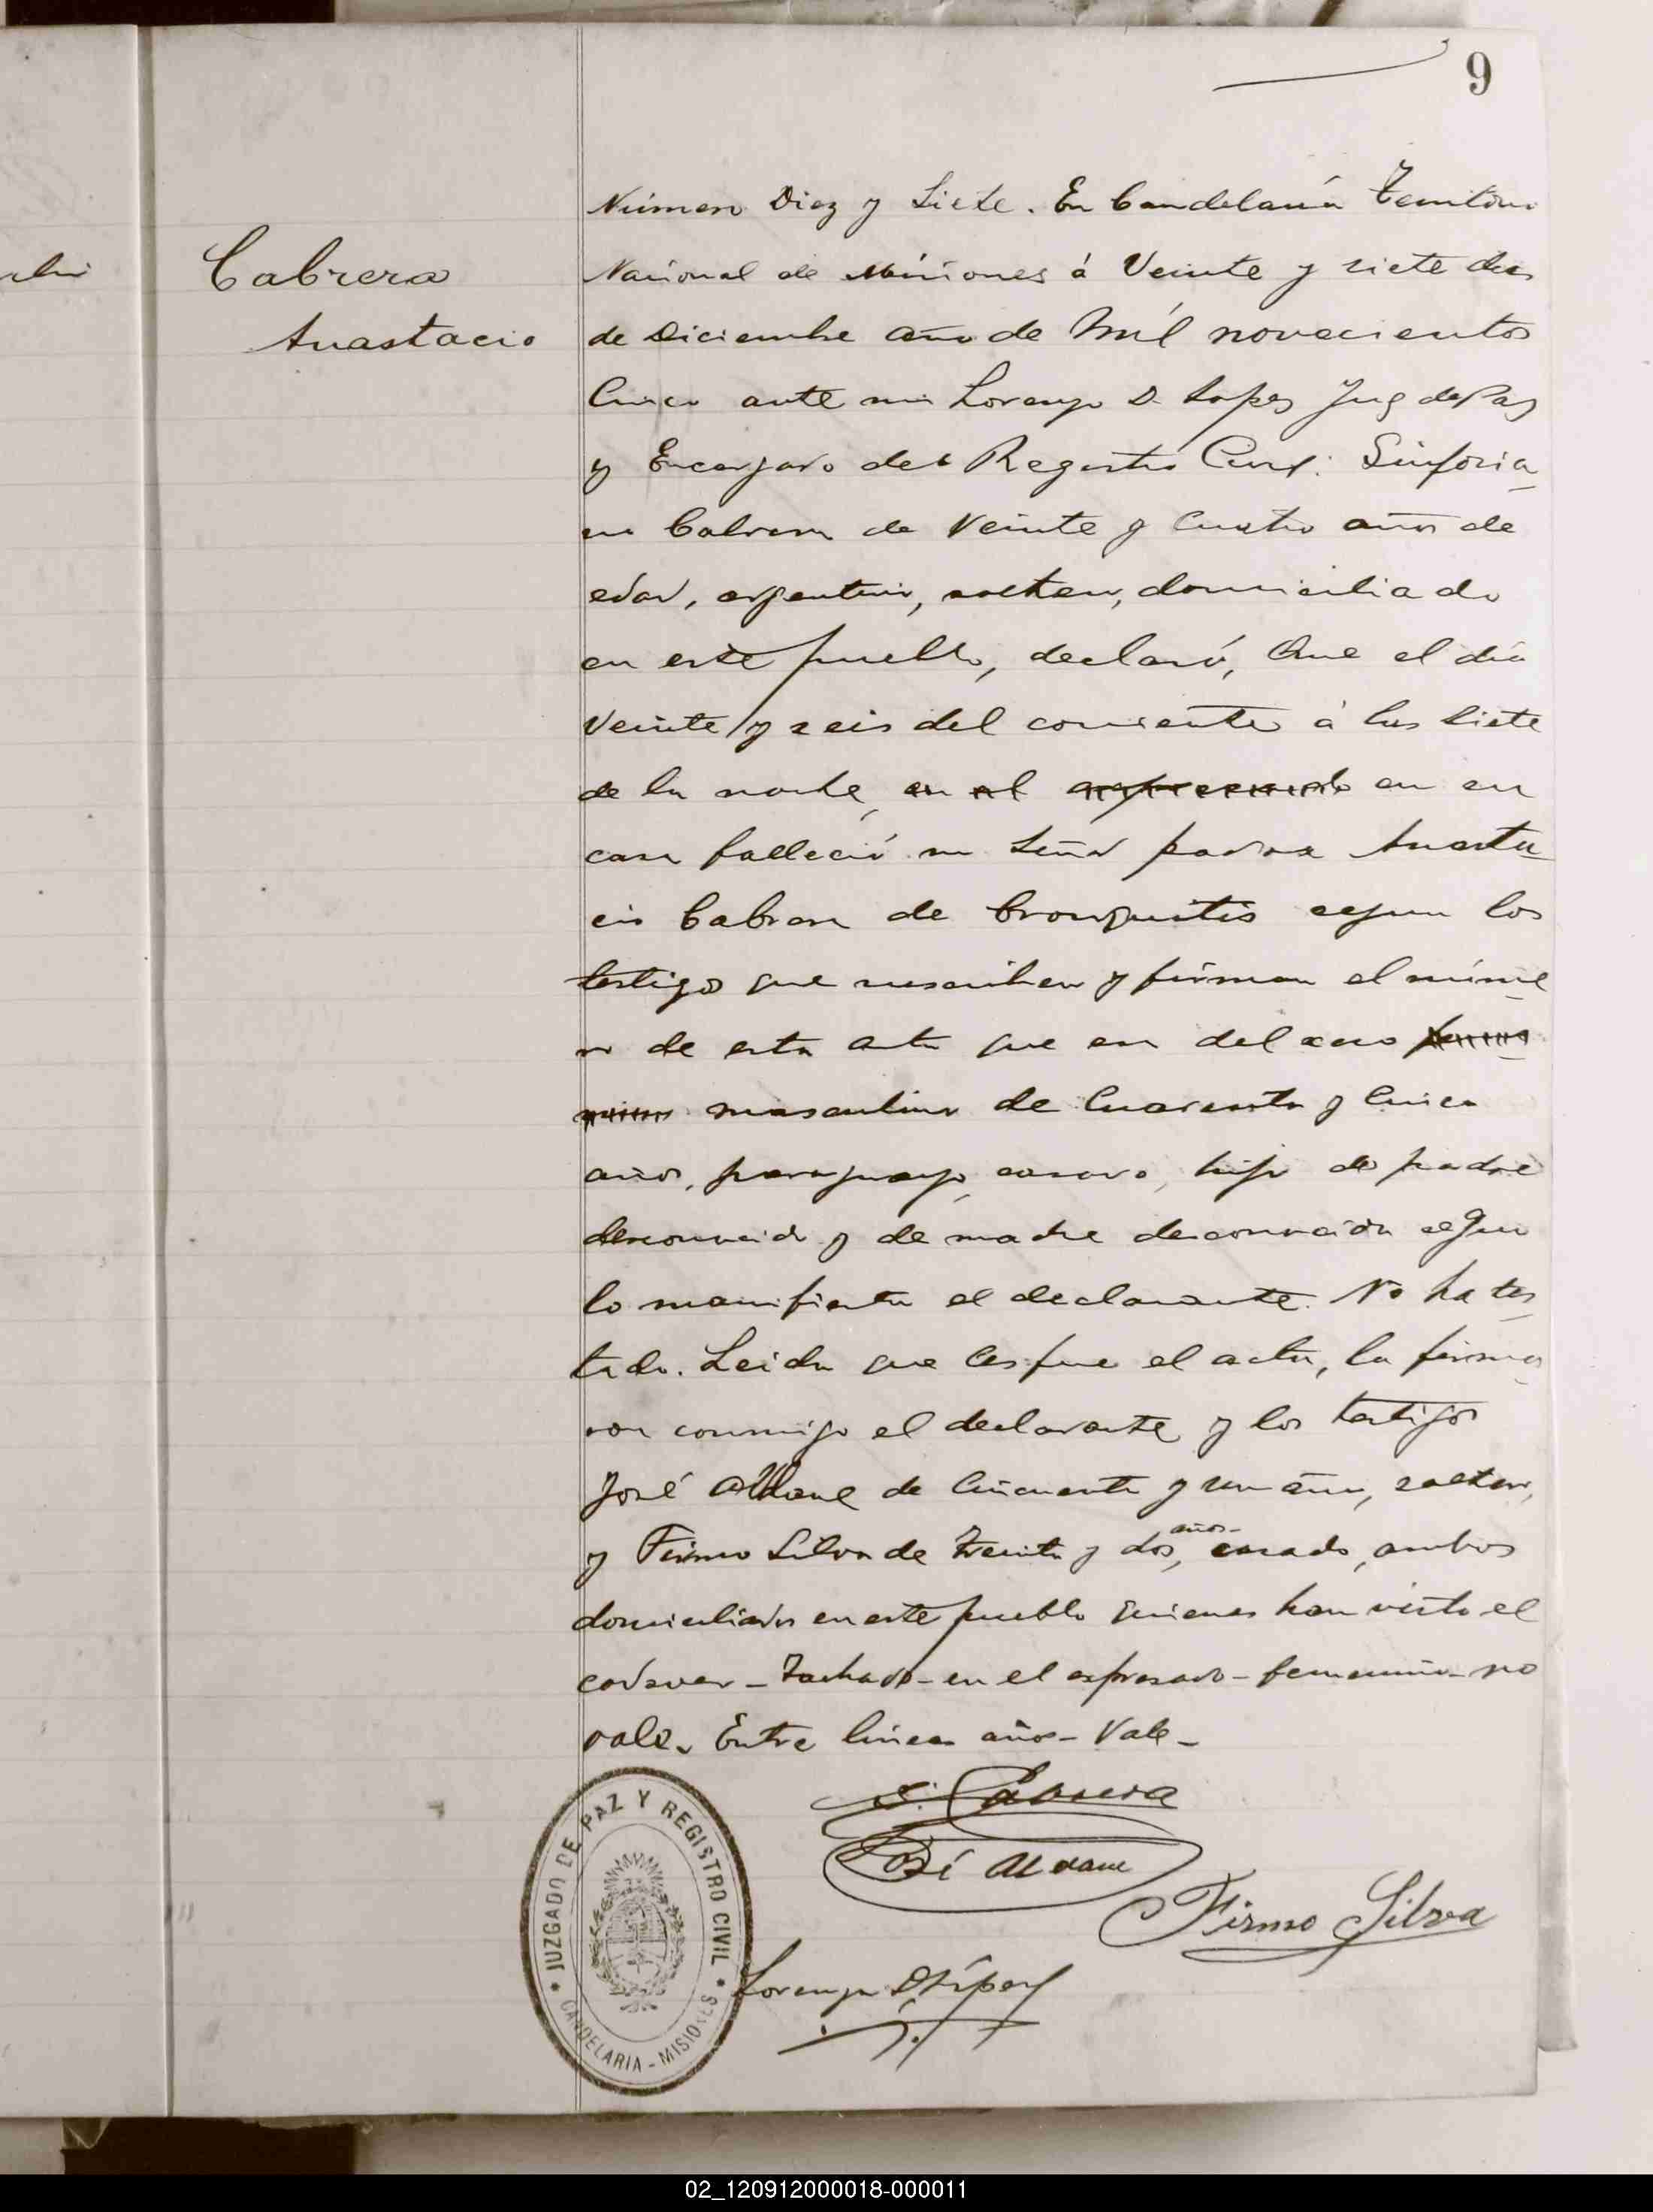 9
Cabrera
Anastacio
Número Diez y Siete. En Candelaria Territorio
Nacional de Misiones á Veinte y siete dias
de Diciembre año de Mil novecientos
Cinco ante mi Lorenzo D. Lopez Juez de Paz
y Encargado del Registro Civil: Sinforia-
no Cabrera de Veinte y Cuatro años de
edad, argentino, soltero, domiciliado
en este pueblo, declaró, Que el dia
Veinte y seis del corriente á las siete
de la noche, en el expresado en su
casa falleció su Señor padre Anasta-
cio Cabrera de bronquitis segun los
testigos que suscriben y firman el núme-
ro de esta acta que era del sexo feme-
nino masculino de Cuarenta y Cinco
años, paraguayo, casado, hijo de padre
desconocido y de madre desconocida segun
lo manifiesta el declarante. No ha tes-
tado. Leida que les fue el acta, la firma-
ron conmigo el declarante y los testigos
José Aldane de Cincuenta y un años, soltero,
y Firmo Silva de Treinta y dos años, casado, ambos
domiciliados en este pueblo quienes han visto el
cadaver - Tachado - en el expresado - femenino - no
vale. Entre lineas años - Vale -
S. Cabrera
José Aldane
Firmo Silva
Lorenzo D Lópes
JUZGADO DE PAZ Y REGISTRO CIVIL
CANDELARIA - MISIONES
02_120912000018-000011